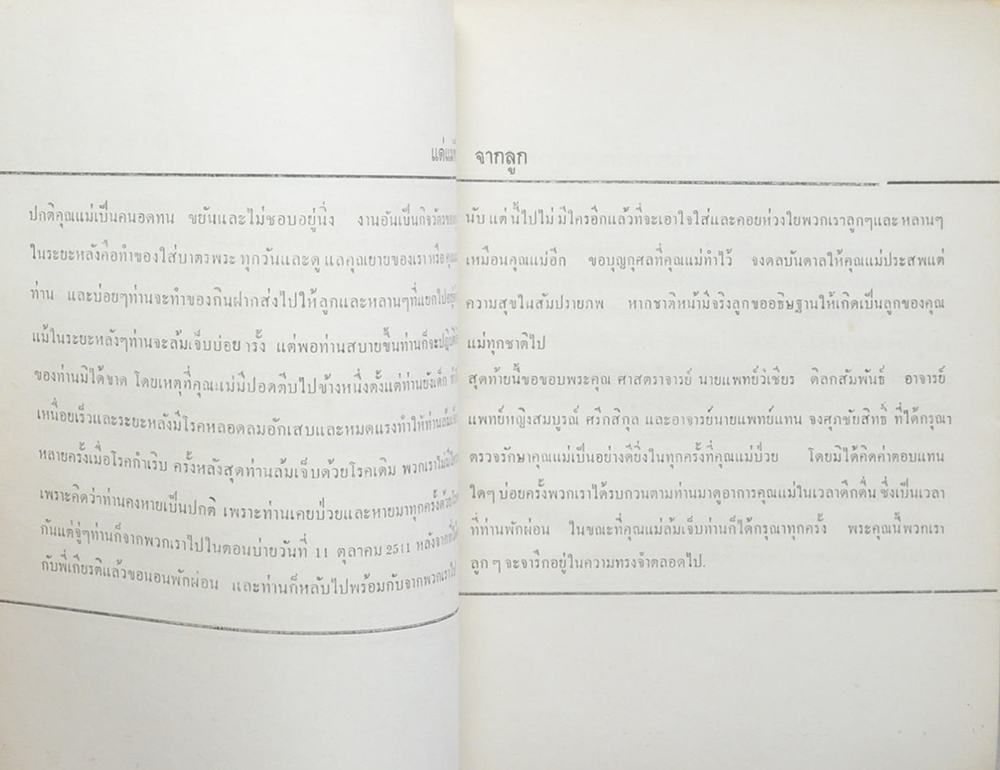 แด่แม่
ปกติคุณแม่เป็นคนอดทน ขยันและไม่ชอบอยู่นิ่ง งานอันเป็นกิจวัตรของ
ในระยะหลังคือทำของใส่บาตรพระ ทุกวันและดูแลคุณยายของเราหรือคุณแม่
ท่าน และบ่อยๆท่านจะทำของกินฝากส่งไปให้ลูกและหลานๆที่แยกไปอยู่
แม้ในระยะหลังๆท่านจะล้มเจ็บบ่อยๆครั้ง แต่พอท่านสบายขึ้นท่านก็จะปฏิบัติ
ของท่านมิได้ขาด โดยเหตุที่คุณแม่มีปอดตีบไปข้างหนึ่งตั้งแต่ท่านยังเด็ก
เหนื่อยเร็วและระยะหลังมีโรคหลอดลมอักเสบและหมดแรงทำให้ท่านล้มเจ็บ
หลายครั้งเมื่อโรคกำเริบ ครั้งหลังสุดท่านล้มเจ็บด้วยโรคเดิม พวกเราไม่
เพราะคิดว่าท่านคงหายเป็นปกติ เพราะท่านเคยป่วยและหายมาทุกครั้งด้วย
กันแต่จู่ๆท่านก็จากพวกเราไปในตอนบ่ายวันที่ 11 ตุลาคม 2511 หลังจาก
กับพี่เกียรติแล้วขอนอนพักผ่อน และท่านก็หลับไปพร้อมกับจากพวกเราไป
จากลูก
นับแต่นี้ไปไม่มีใครอีกแล้วที่จะเอาใจใส่และคอยห่วงใยพวกเราลูกๆและหลานๆ
เหมือนคุณแม่อีก ขอบุญกุศลที่คุณแม่ทำไว้ จงดลบันดาลให้คุณแม่ประสพแต่
ความสุขในสัมปรายภพ หากชาติหน้ามีจริงลูกขออธิษฐานให้เกิดเป็นลูกของคุณ
แม่ทุกชาติไป
สุดท้ายนี้ขอขอบพระคุณ ศาสตราจารย์ นายแพทย์วิเชียร ดิลกสัมพันธ์ อาจารย์
แพทย์หญิงสมบูรณ์ ศรีกสิกุล และอาจารย์นายแพทย์แทน จงศุภชัยสิทธิ์ ที่ได้กรุณา
ตรวจรักษาคุณแม่เป็นอย่างดียิ่งในทุกครั้งที่คุณแม่ป่วย โดยมิได้คิดค่าตอบแทน
ใดๆ บ่อยครั้งพวกเราได้รบกวนตามท่านมาดูอาการคุณแม่ในเวลาดึกดื่น ซึ่งเป็นเวลา
ที่ท่านพักผ่อน ในขณะที่คุณแม่ล้มเจ็บท่านก็ได้กรุณาทุกครั้ง พระคุณนี้พวกเรา
ลูก ๆ จะจารึกอยู่ในความทรงจำตลอดไป.